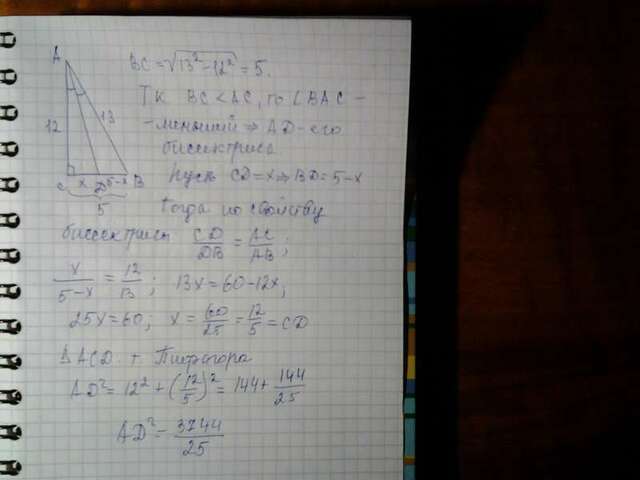 A
12
13
C x D 5-x B
5
BC = √(13² - 12²) = 5.
Тк BC < AC, то ∠BAC -
- меньший ⇒ AD - его
биссектриса
Пусть CD = x ⇒ BD = 5-x
Тогда по свойству
биссектрисы CD/DB = AC/AB ;
x/(5-x) = 12/13 ; 13x = 60 - 12x;
25x = 60; x = 60/25 = 12/5 = CD
Δ ACD. т. Пифагора
AD² = 12² + (12/5)² = 144 + 144/25
AD² = 3744/25